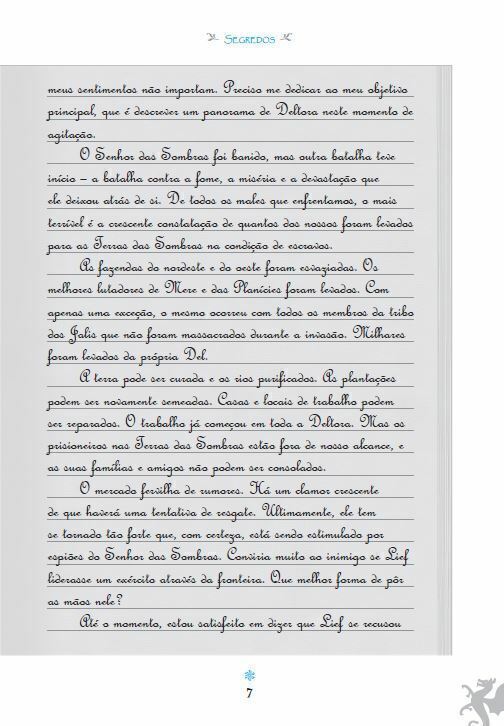 SEGREDOS
meus sentimentos não importam. Preciso me dedicar ao meu objetivo
principal, que é descrever um panorama de Deltora neste momento de
agitação.
O Senhor das Sombras foi banido, mas outra batalha teve
início – a batalha contra a fome, a miséria e a devastação que
ele deixou atrás de si. De todos os males que enfrentamos, o mais
terrível é a crescente constatação de quantos dos nossos foram levados
para as Terras das Sombras na condição de escravos.
As fazendas do nordeste e do oeste foram esvaziadas. Os
melhores lutadores de Mere e das Planícies foram levados. Com
apenas uma exceção, o mesmo ocorreu com todos os membros da tribo
dos Jalis que não foram massacrados durante a invasão. Milhares
foram levados da própria Del.
A terra pode ser curada e os rios purificados. As plantações
podem ser novamente semeadas. Casas e locais de trabalho podem
ser reparados. O trabalho já começou em toda a Deltora. Mas os
prisioneiros nas Terras das Sombras estão fora de nosso alcance, e
as suas famílias e amigos não podem ser consolados.
O mercado fervilha de rumores. Há um clamor crescente
de que haverá uma tentativa de resgate. Ultimamente, ele tem
se tornado tão forte que, com certeza, está sendo estimulado por
espiões do Senhor das Sombras. Conviria muito ao inimigo se Lief
liderasse um exército através da fronteira. Que melhor forma de pôr
as mãos nele?
Até o momento, estou satisfeito em dizer que Lief se recusou
7